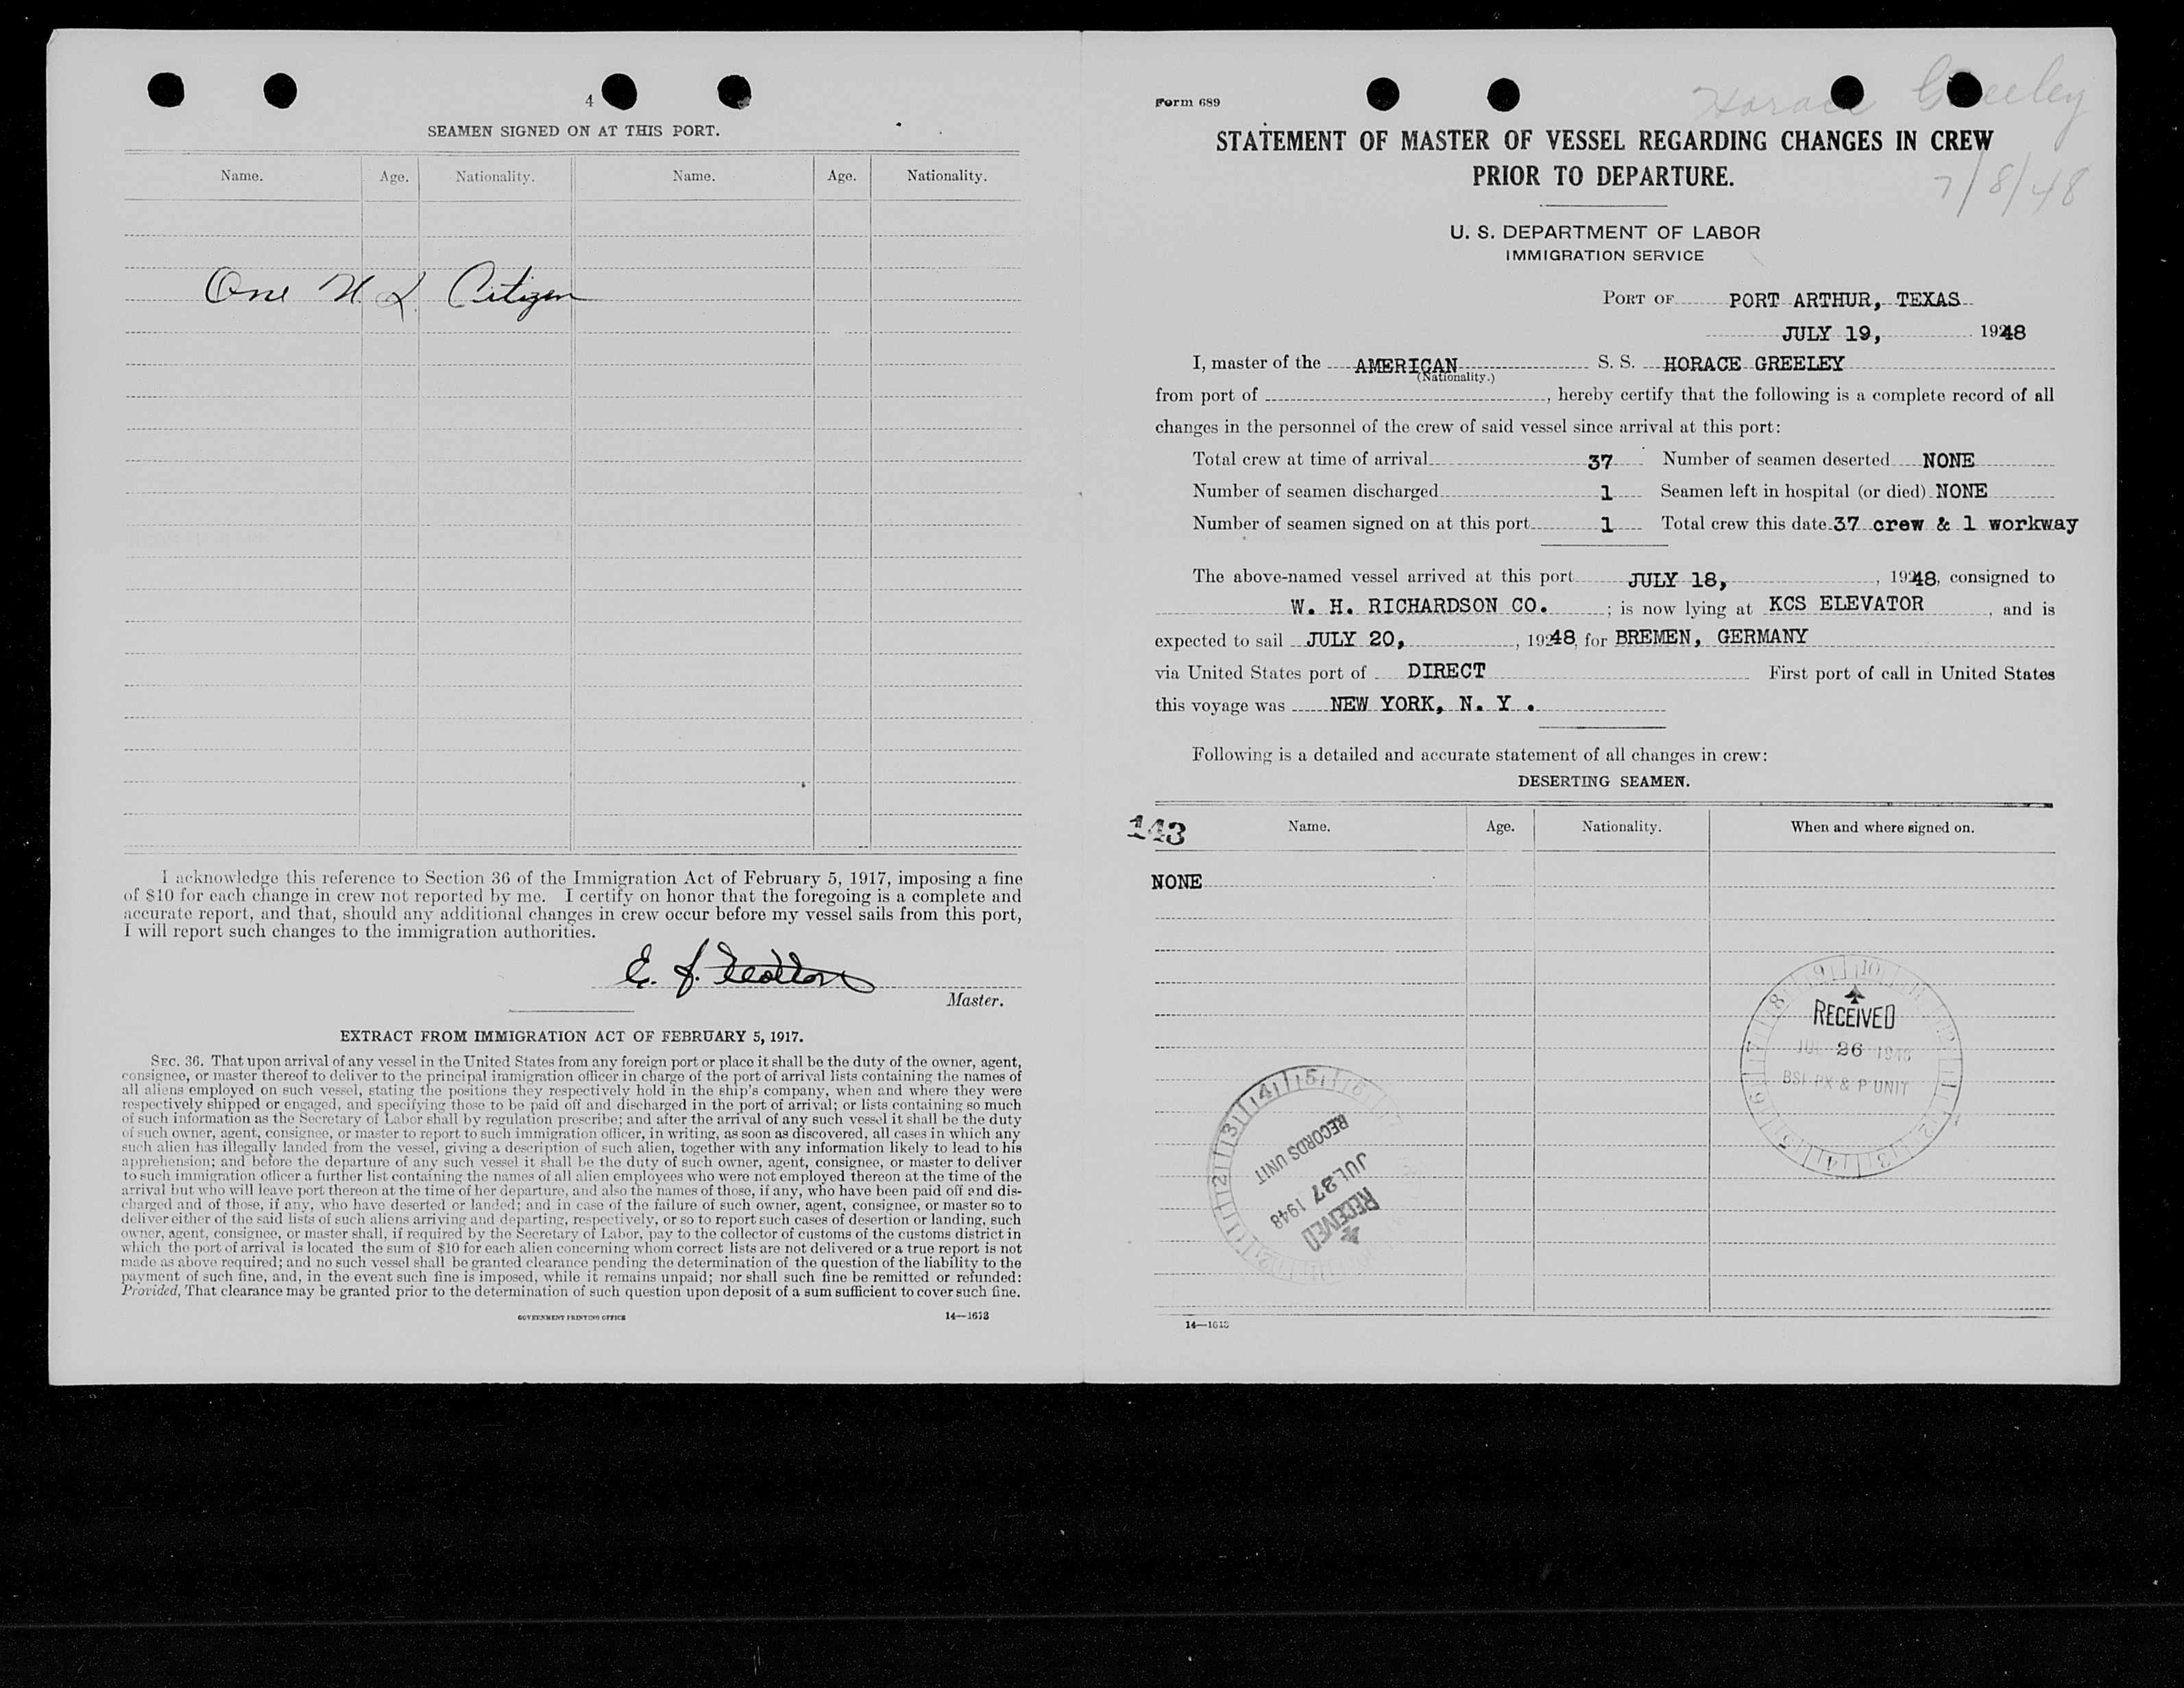 4
SEAMEN SIGNED ON AT THIS PORT.
Name. Age. Nationality. Name. Age. Nationality.
One U.S. Citizen
I acknowledge this reference to Section 36 of the Immigration Act of February 5, 1917, imposing a fine
of $10 for each change in crew not reported by me. I certify on honor that the foregoing is a complete and
accurate report, and that, should any additional changes in crew occur before my vessel sails from this port,
I will report such changes to the immigration authorities.
E. J.
Master.
EXTRACT FROM IMMIGRATION ACT OF FEBRUARY 5, 1917.
SEC. 36. That upon arrival of any vessel in the United States from any foreign port or place it shall be the duty of the owner, agent,
consignee, or master thereof to deliver to the principal immigration officer in charge of the port of arrival lists containing the names of
all aliens employed on such vessel, stating the positions they respectively hold in the ship's company, when and where they were
respectively shipped or engaged, and specifying those to be paid off and discharged in the port of arrival; or lists containing so much
of such information as the Secretary of Labor shall by regulation prescribe; and after the arrival of any such vessel it shall be the duty
of such owner, agent, consignee, or master to report to such immigration officer, in writing, as soon as discovered, all cases in which any
such alien has illegally landed from the vessel, giving a description of such alien, together with any information likely to lead to his
apprehension; and before the departure of any such vessel it shall be the duty of such owner, agent, consignee, or master to deliver
to such immigration officer a further list containing the names of all alien employees who were not employed thereon at the time of the
arrival but who will leave port thereon at the time of her departure, and also the names of those, if any, who have been paid off and dis-
charged and of those, if any, who have deserted or landed; and in case of the failure of such owner, agent, consignee, or master so to
deliver either of the said lists of such aliens arriving and departing, respectively, or so to report such cases of desertion or landing, such
owner, agent, consignee, or master shall, if required by the Secretary of Labor, pay to the collector of customs of the customs district in
which the port of arrival is located the sum of $10 for each alien concerning whom correct lists are not delivered or a true report is not
made as above required; and no such vessel shall be granted clearance pending the determination of the question of the liability to the
payment of such fine, and, in the event such fine is imposed, while it remains unpaid; nor shall such fine be remitted or refunded:
Provided, That clearance may be granted prior to the determination of such question upon deposit of a sum sufficient to cover such fine.
GOVERNMENT PRINTING OFFICE 14—1613
Form 689
Horace Greeley
7/8/48
STATEMENT OF MASTER OF VESSEL REGARDING CHANGES IN CREW
PRIOR TO DEPARTURE.
U. S. DEPARTMENT OF LABOR
IMMIGRATION SERVICE
PORT OF PORT ARTHUR, TEXAS
JULY 19, 1948
I, master of the AMERICAN S. S. HORACE GREELEY
(Nationality.)
from port of , hereby certify that the following is a complete record of all
changes in the personnel of the crew of said vessel since arrival at this port:
Total crew at time of arrival 37 Number of seamen deserted NONE
Number of seamen discharged 1 Seamen left in hospital (or died) NONE
Number of seamen signed on at this port 1 Total crew this date 37 crew & 1 workway
The above-named vessel arrived at this port JULY 18, , 1948, consigned to
W. H. RICHARDSON CO. ; is now lying at KCS ELEVATOR , and is
expected to sail JULY 20, , 1948, for BREMEN, GERMANY
via United States port of DIRECT First port of call in United States
this voyage was NEW YORK, N. Y .
Following is a detailed and accurate statement of all changes in crew:
DESERTING SEAMEN.
143
Name. Age. Nationality. When and where signed on.
NONE
RECEIVED
JUL 26 1948
BSI PX & P UNIT
RECEIVED
JUL 27 1948
RECORDS UNIT
14—1613